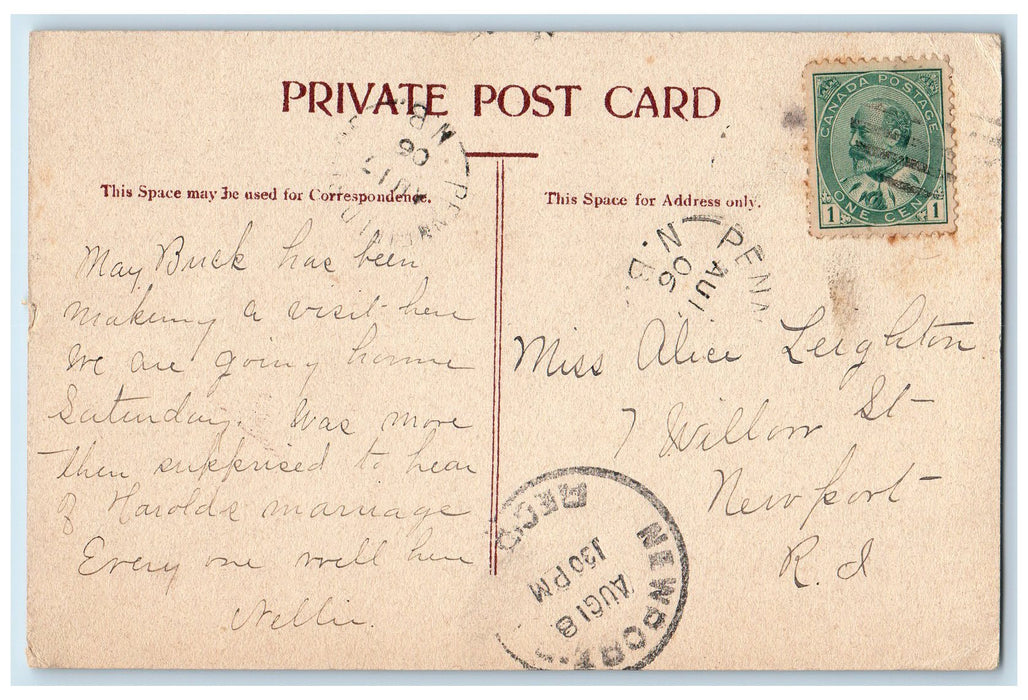 PRIVATE POST CARD
This Space may be used for Correspondence.
May Buck has been
making a visit here
We are going home
Saturday. Was more
then supprised to hear
of Harolds marriage
Every one well here
Nellie.
This Space for Address only.
CANADA POSTAGE
1 ONE CENT 1
PENN
AU 17
06
N.B.
PENN
AU 1
06
N.B.
Miss Alice Leighton
7 Willow St
Newport
R.I
NEWPORT
REC'D
130 PM
AUG 18